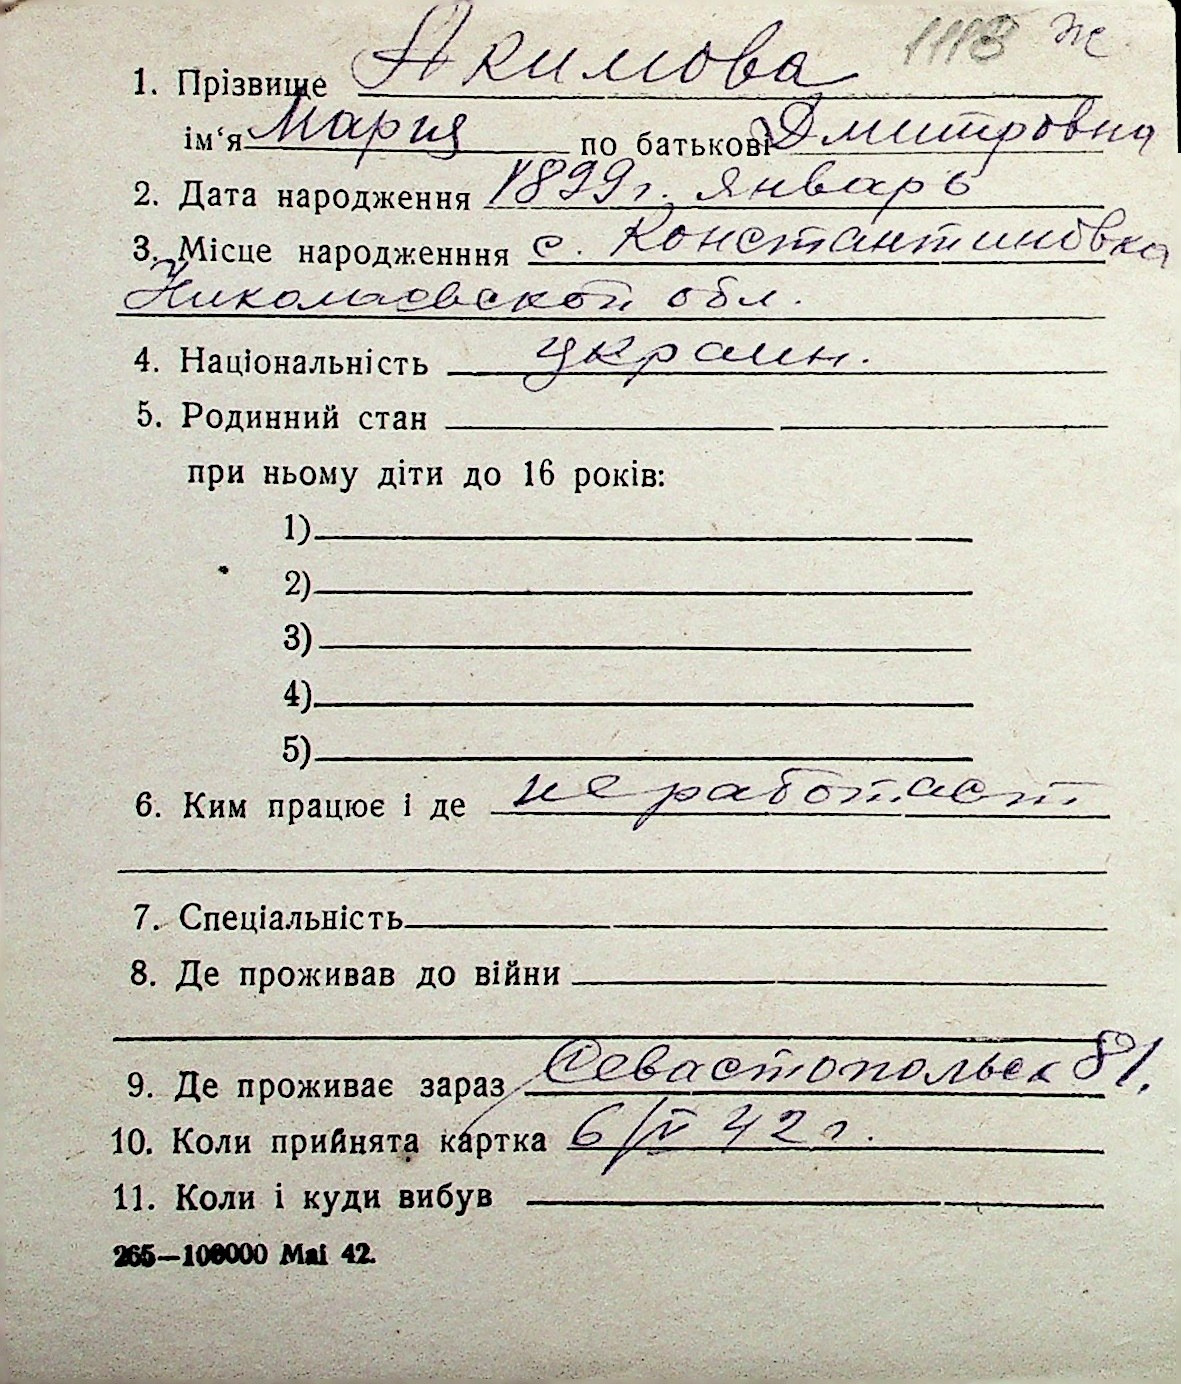 1118 ж
1. Прізвище Якимова
ім‘я Мария по батькові Дмитровна
2. Дата народження 1899 г. январь
3. Місце народженння с. Константиновка
Николаевской обл.
4. Національність украин.
5. Родинний стан
при ньому діти до 16 років:
1)
2)
3)
4)
5)
6. Ким працює і де не работает
7. Спеціальність
8. Де проживав до війни
9. Де проживає зараз Севастопольск 81.
10. Коли прийнята картка 6/V 42 г.
11. Коли і куди вибув
265—100000 Mai 42.